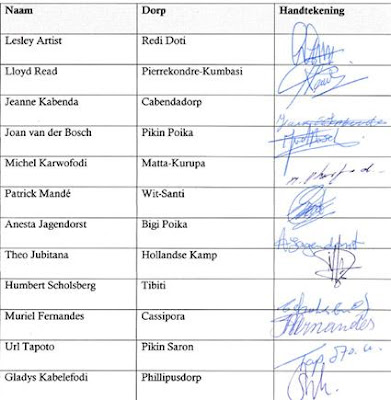 Naam Dorp Handtekening
Lesley Artist Redi Doti
Lloyd Read Pierrekondre-Kumbasi
Jeanne Kabenda Cabendadorp
Joan van der Bosch Pikin Poika
Michel Karwofodi Matta-Kurupa
Patrick Mandé Wit-Santi
Anesta Jagendorst Bigi Poika
Theo Jubitana Hollandse Kamp
Humbert Scholsberg Tibiti
Muriel Fernandes Cassipora Fernandes
Url Tapoto Pikin Saron
Gladys Kabelefodi Phillipusdorp